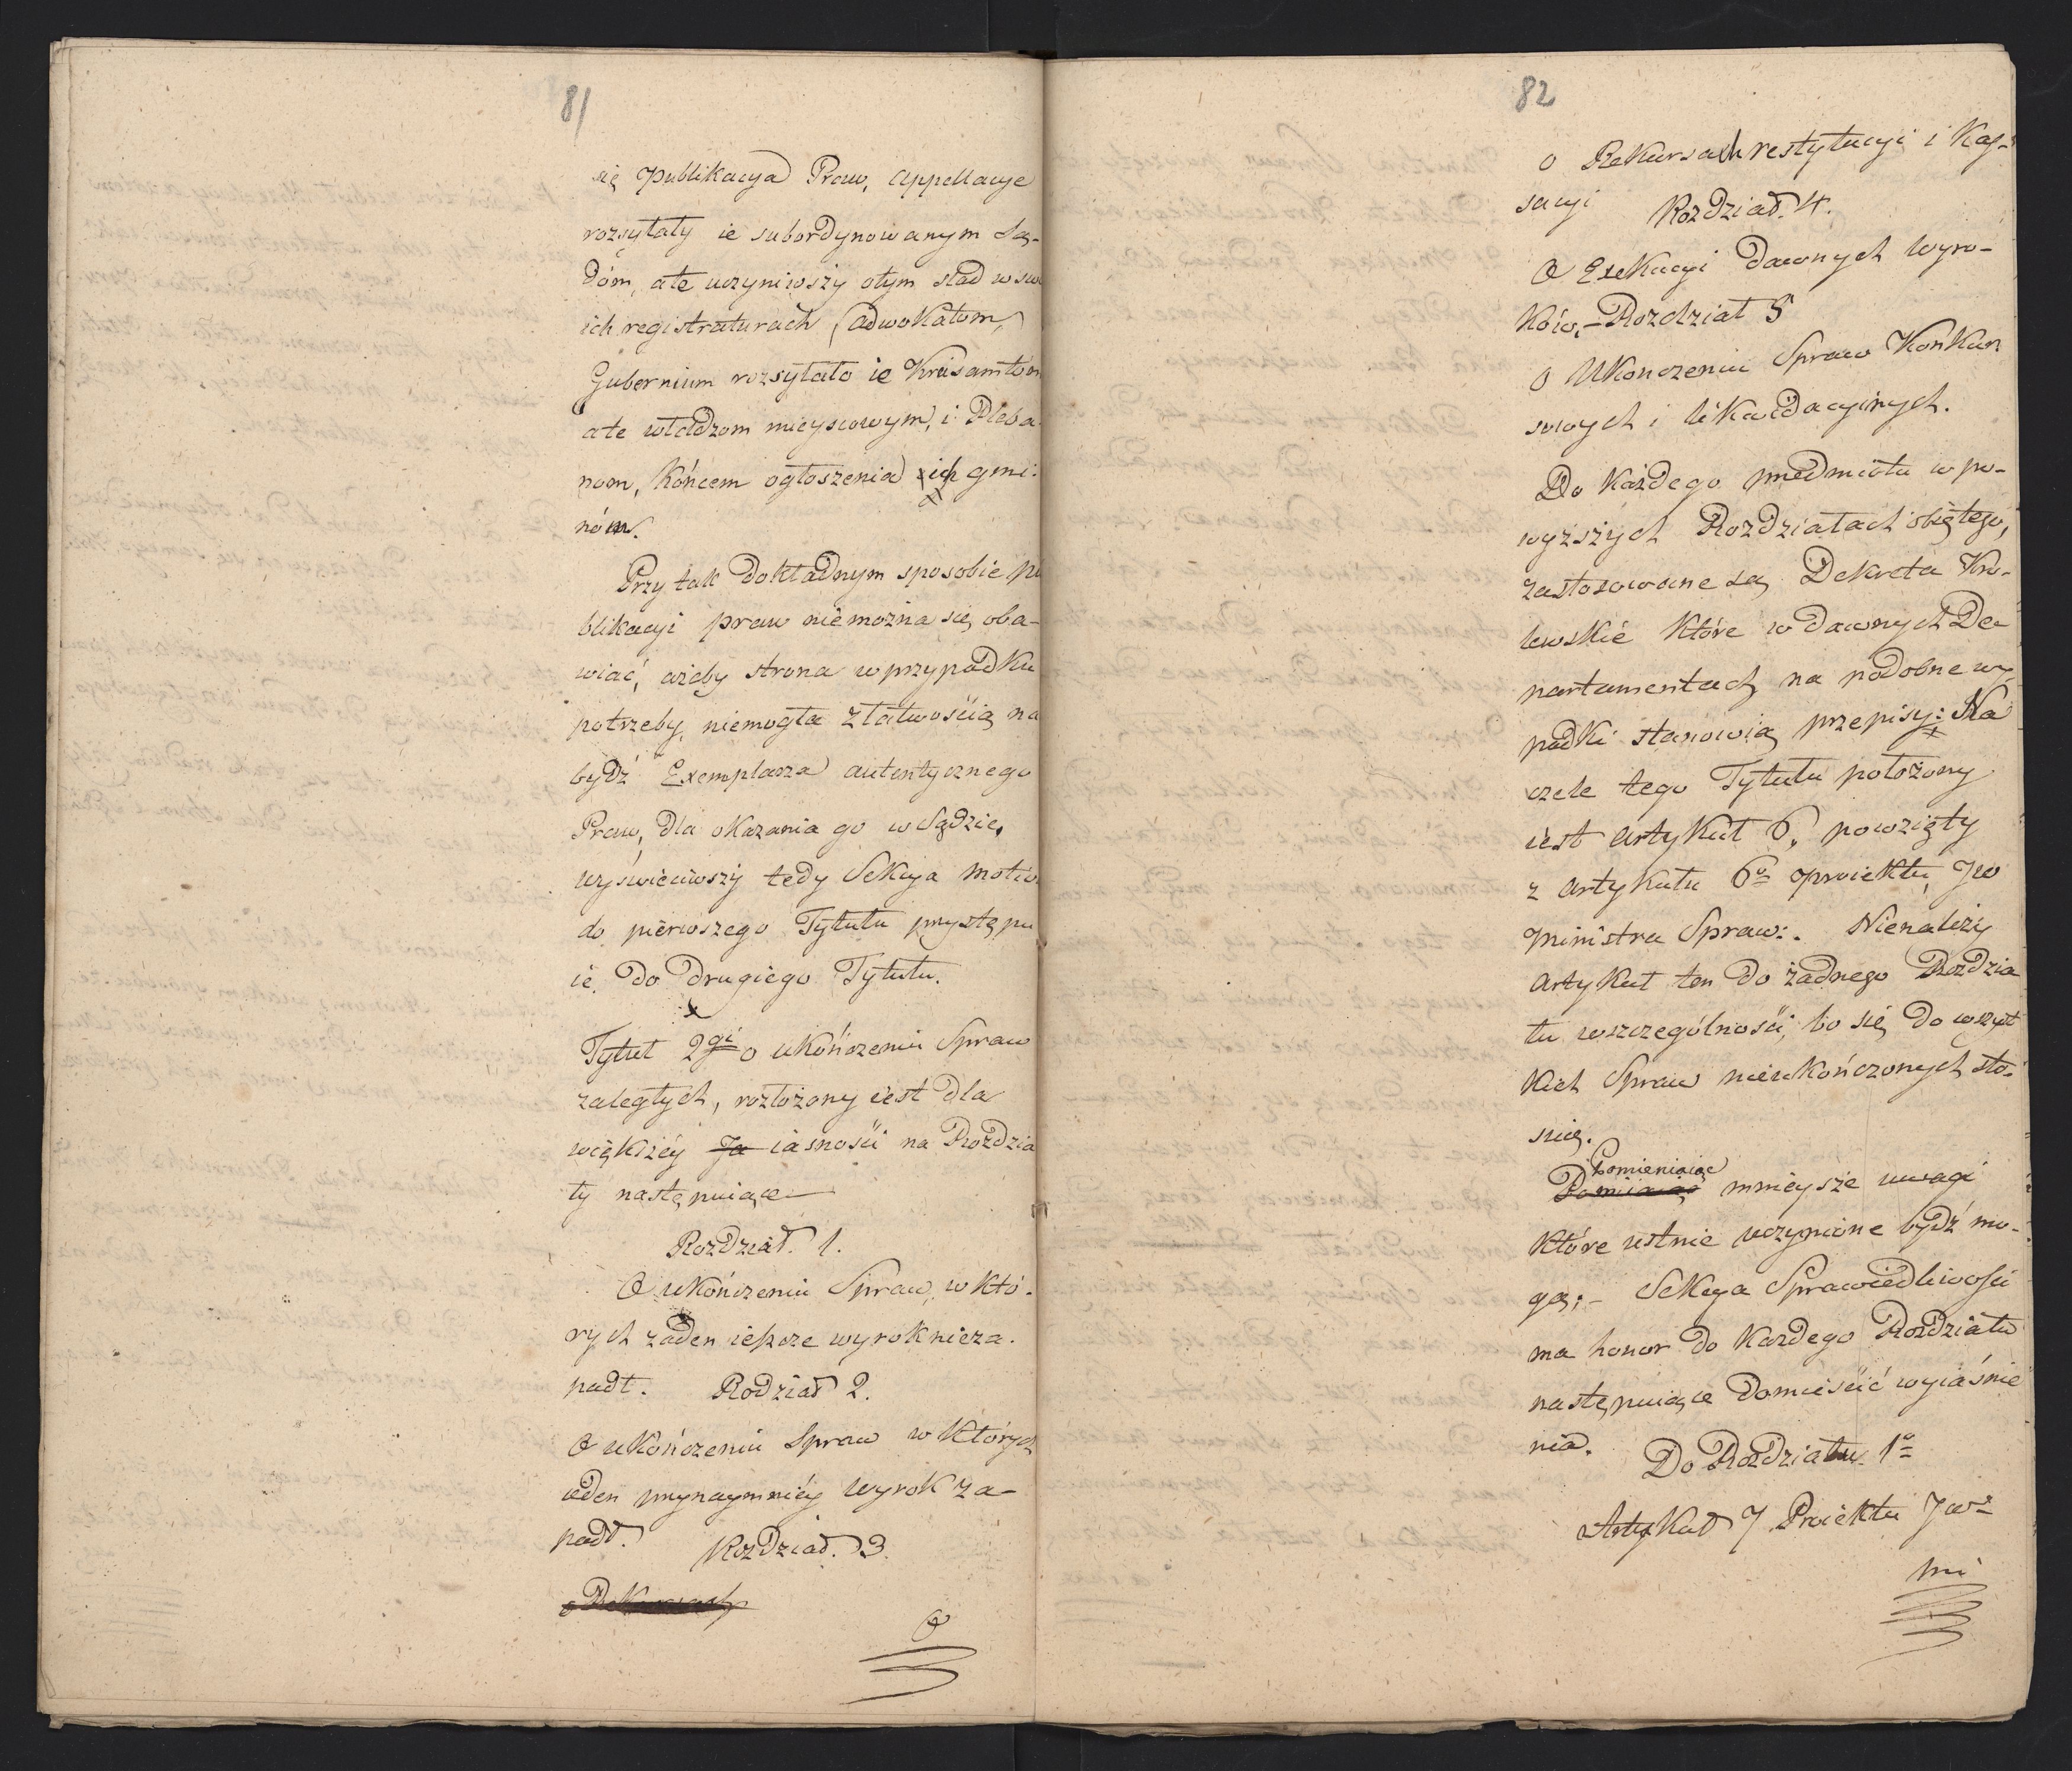 81
się publikacya Praw, Appellacye
rozsyłały ie subordynowanym Są-
dóm, ale uczyniwszy otym ślad w swo
ich registraturach, Adwokatom,
Gubernium rozsyłało ie Kreisamtom
ale władzom mieyscowym, i Pleba
nom, końcem ogłoszenia ich gmi-
nóm.
Przy tak dokładnym sposobie pu
blikacyi praw niemożna się oba-
wiać, ażeby strona w przypadku
potrzeby, niemogła z łatwością na
bydź Exemplarza autentycznego
Praw, dla okazania go w Sądzie,
wyświeciwszy tedy Sekcya motiwa
do pierwszego Tytułu przystępu
ie do drugiego Tytułu.
Tytuł 2gi o ukończeniu Spraw
zaległych, rozłożony iest dla
większéy Ja iasności na Rozdzia
ły następuiące
Rozdział. 1.
O ukończeniu Spraw, w któ-
rych żaden ieszcze wyrok nieza-
padł. Rodział 2.
O ukończeniu Spraw w których
ieden przynaymniéy wyrok za-
padł. Rozdział. 3.
o Rekursach
O
82
o Rekursach restytucyi i Kas-
sacyi Rozdział. 4.
O Exekucyi dawnych Wyro-
ków,- Rozdział 5
O Ukonczeniu Spraw Konkur
sowych i likwidacyinych.
Do każdego przedmiotu w po-
wyższych Rozdziałach obiętego,
zastosowane są Dekreta Kró-
lewskié które w dawnych De-
partamentach na podobne wy-
padki stanowią przepisy: Na
czele tego Tytułu położony
iest Artykuł 6, powzięty
z Artykułu 6o proiektu JW
Ministra Spraw:. Nienależy
Artykuł ten do żadnego Rozdzia
łu w szczególności, bo się do wszyst
kich Spraw nieukończonych sto-
suie.
Pomieniaiąc
Pomiaiąc mnieysze uwagi
które ustnie uczynione bydź mo-
gą;- Sekcya Sprawiedliwości
ma honor do każdego Rozdziału
następuiące domieścić wyiaśnie
nia. Do Rozdziału. 1o
Artykuł 7 Proiektu JWo
mi